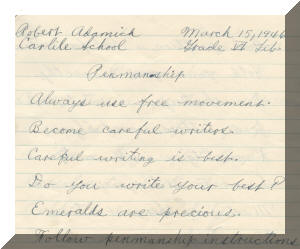 Robert Adamich March 15, 1946
Carlile School Grade VI Lib.
Penmanship
Always use free movement.
Become careful writers.
Careful writing is best.
Do you write your best?
Emeralds are precious.
Follow penmanship instructions